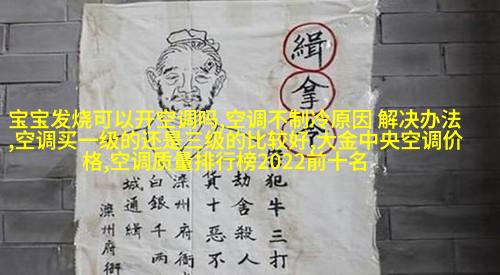 宝宝发烧可以开空调吗,空调不制冷原因 解决办法
,空调买一级的还是三级的比较好,大金中央空调价
格,空调质量排行榜2022前十名
緝拿令
犯牛三打
劫舍殺人
貨十惡不
滦州府衙
白銀千兩
城通緝
滦州府衙